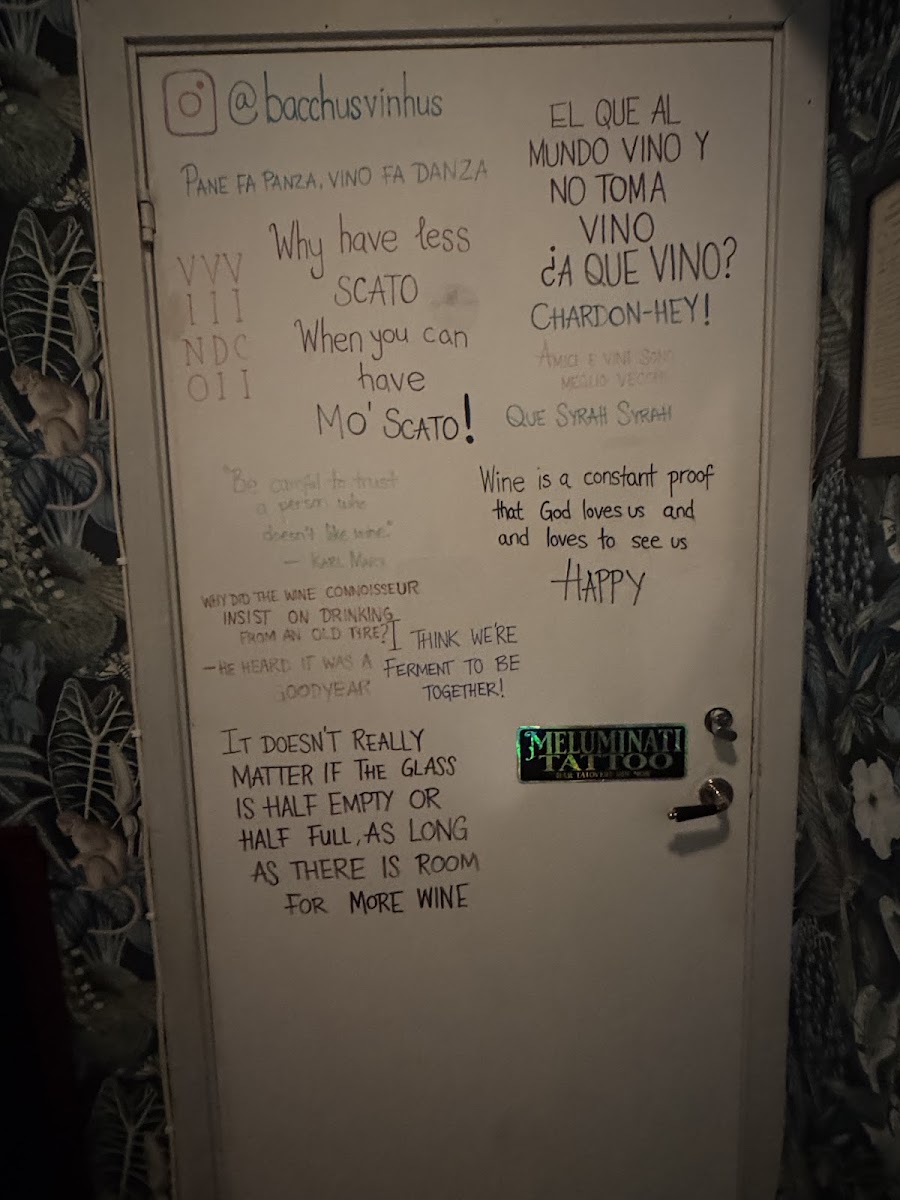 @bacchusvinhus
PANE FA PANZA, VINO FA DANZA
VVV
III
NDC
OII
Why have less
SCATO
When you can
have
MO' SCATO!
"Be careful to trust
a person who
doesn't like wine."
— KARL MARX
WHY DID THE WINE CONNOISSEUR
INSIST ON DRINKING
FROM AN OLD TIRE?
—HE HEARD IT WAS A
GOODYEAR
I THINK WE'RE
FERMENT TO BE
TOGETHER!
IT DOESN'T REALLY
MATTER IF THE GLASS
IS HALF EMPTY OR
HALF FULL, AS LONG
AS THERE IS ROOM
FOR MORE WINE
EL QUE AL
MUNDO VINO Y
NO TOMA
VINO
¿A QUE VINO?
CHARDON-HEY!
AMICI E VINI SONO
MEGLIO VECCHI
QUE SYRAH SYRAH
Wine is a constant proof
that God loves us and
and loves to see us
HAPPY
MELUMINATI
TATTOO